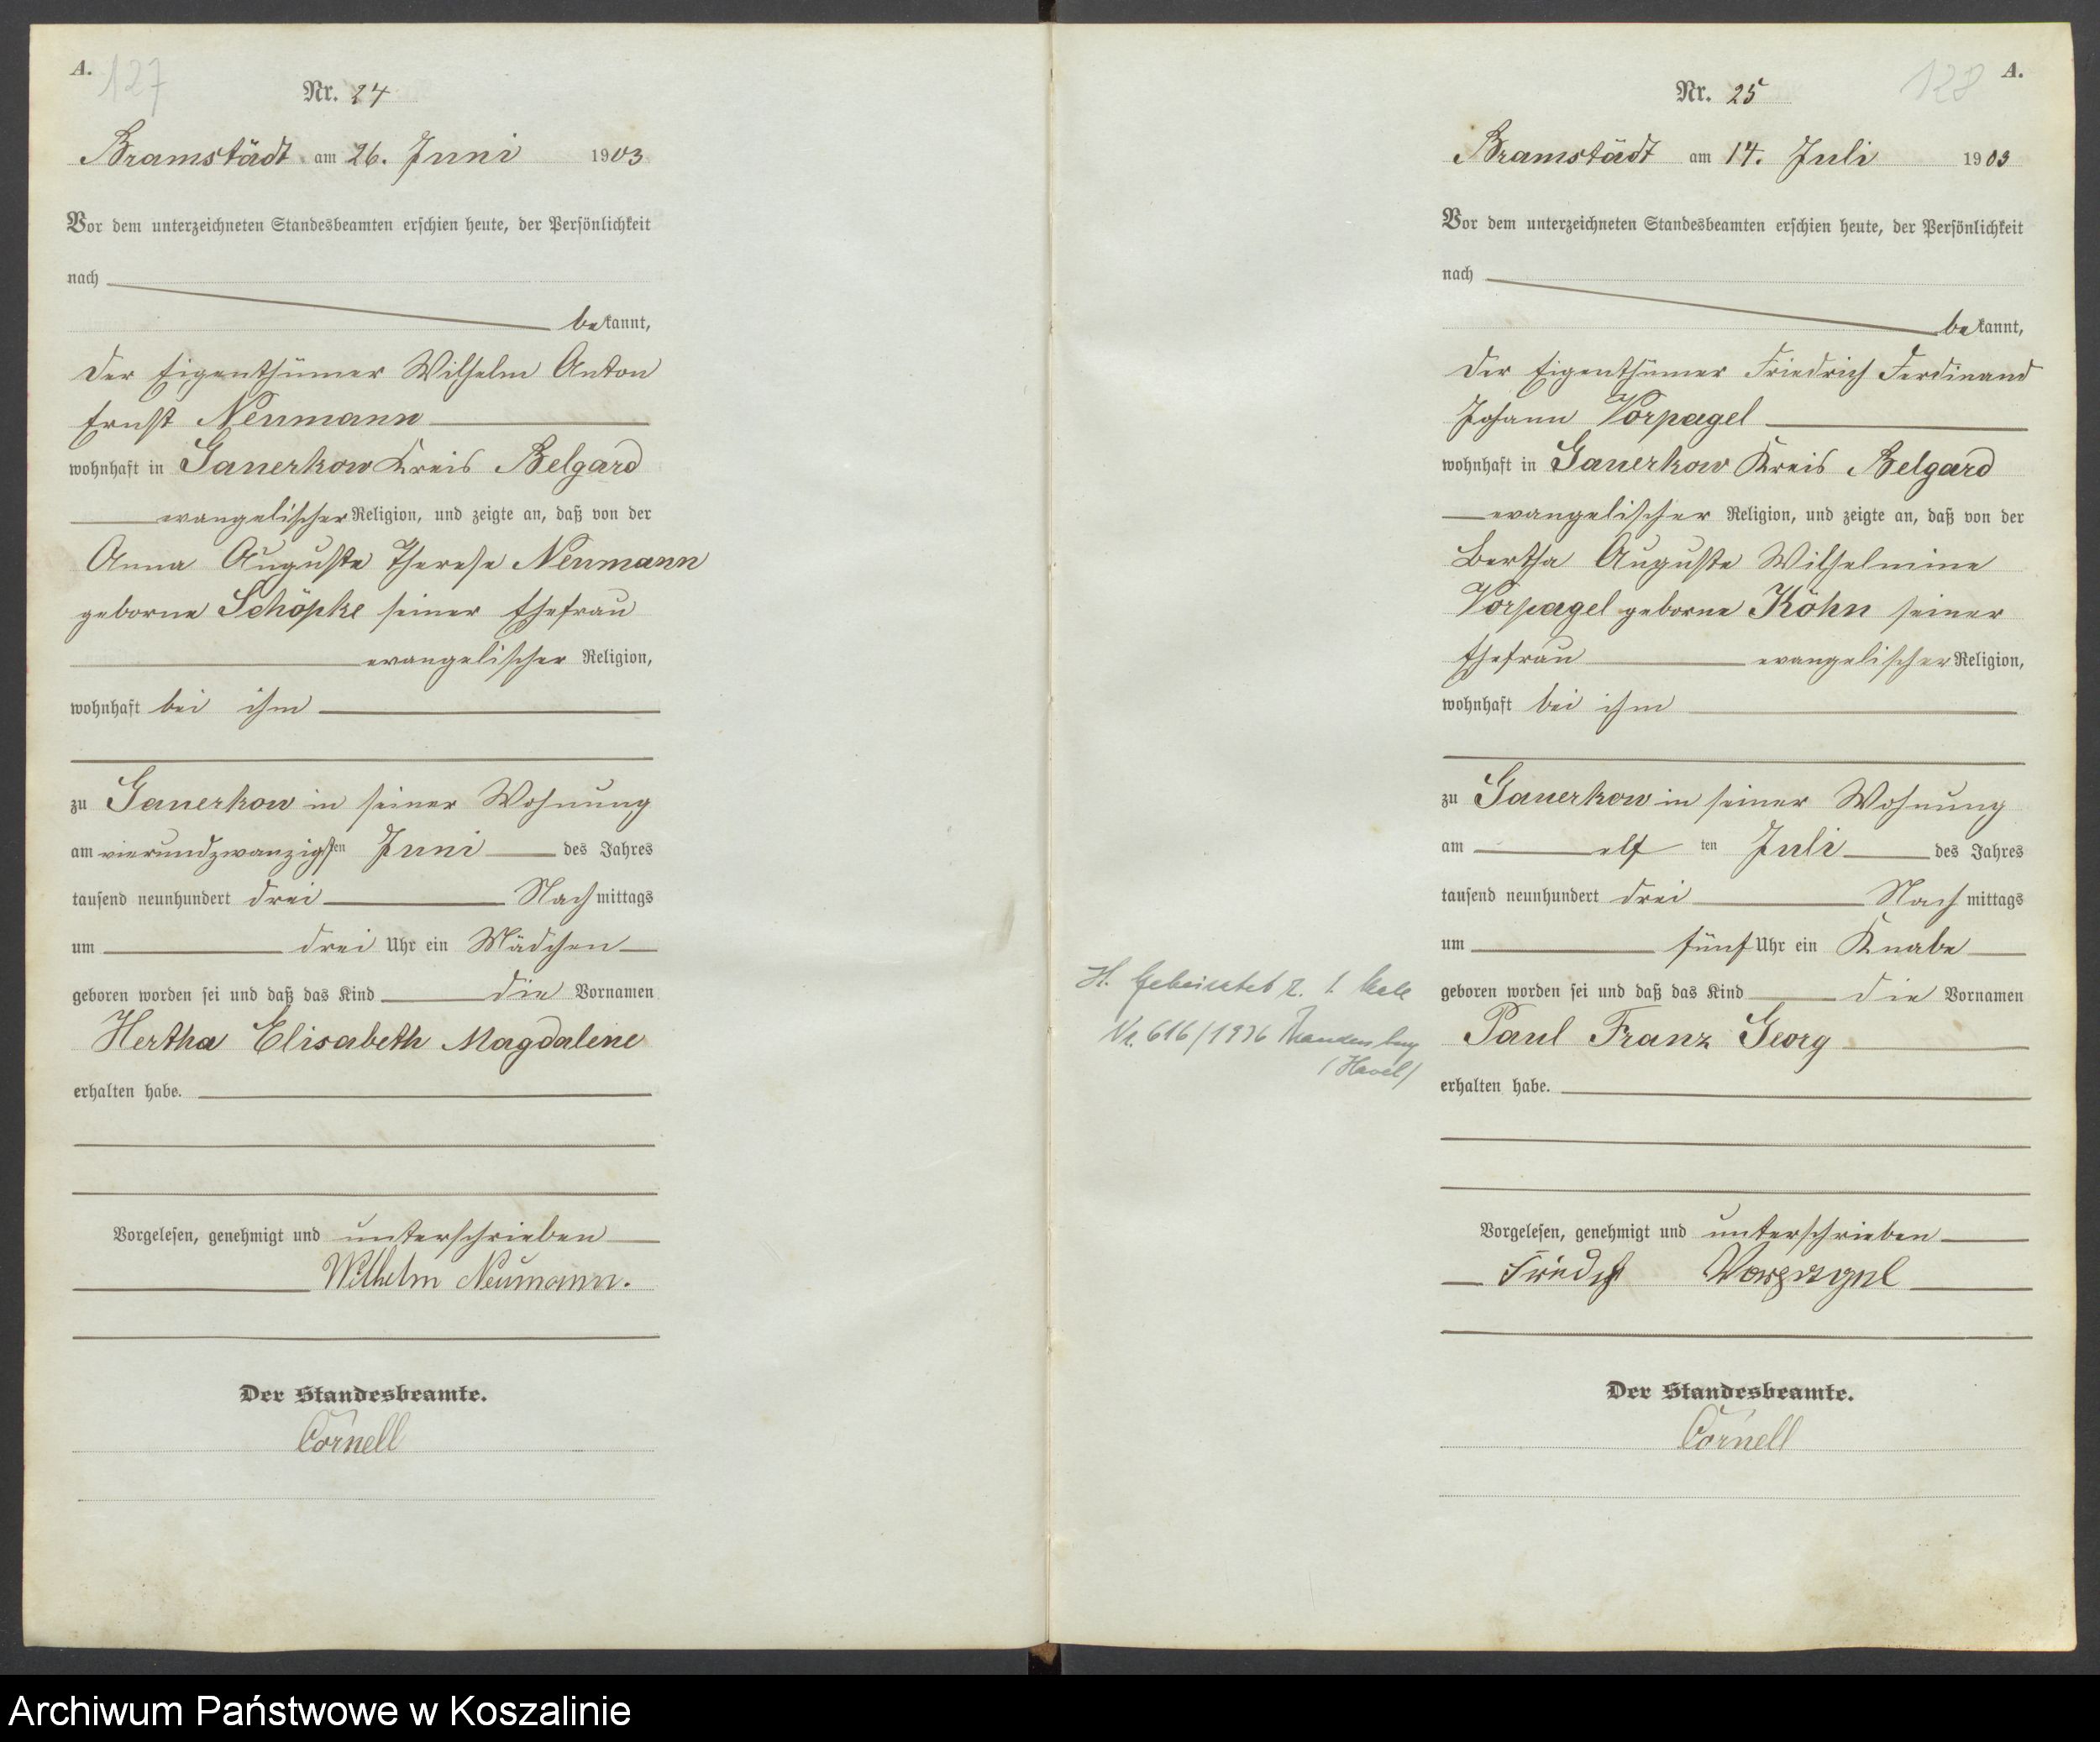 A.
127
Nr. 24
Bramstädt am 26. Juni 1903
Vor dem unterzeichneten Standesbeamten erschien heute, der Persönlichkeit
nach
bekannt,
der Eigenthümer Wilhelm Anton
Ernst Neumann
wohnhaft in Ganerkow Kreis Belgard
evangelischer Religion, und zeigte an, daß von der
Anna Auguste Therese Neumann
geborne Schöpke seiner Ehefrau
evangelischer Religion,
wohnhaft bei ihm
zu Ganerkow in seiner Wohnung
am vierundzwanzigsten Juni des Jahres
tausend neunhundert drei Nachmittags
um drei Uhr ein Mädchen
geboren worden sei und daß das Kind die Vornamen
Hertha Elisabeth Magdalene
erhalten habe.
Vorgelesen, genehmigt und unterschrieben
Wilhelm Neumann.
Der Standesbeamte.
Cornell
A.
128
Nr. 25
Bramstädt am 14. Juli 1903
Vor dem unterzeichneten Standesbeamten erschien heute, der Persönlichkeit
nach
bekannt,
der Eigenthümer Friedrich Ferdinand
Johann Vorpagel
wohnhaft in Ganerkow Kreis Belgard
evangelischer Religion, und zeigte an, daß von der
Bertha Auguste Wilhelmine
Vorpagel geborne Köhn seiner
Ehefrau evangelischer Religion,
wohnhaft bei ihm
zu Ganerkow in seiner Wohnung
am elften Juli des Jahres
tausend neunhundert drei Nachmittags
um fünf Uhr ein Knabe
geboren worden sei und daß das Kind die Vornamen
Paul Franz Georg
erhalten habe.
H. Geheiratet z. 1. Male
Nr. 616/1936 Brandenburg
(Havel)
Vorgelesen, genehmigt und unterschrieben
Friedch Vorpagel
Der Standesbeamte.
Cornell
Archiwum Państwowe w Koszalinie